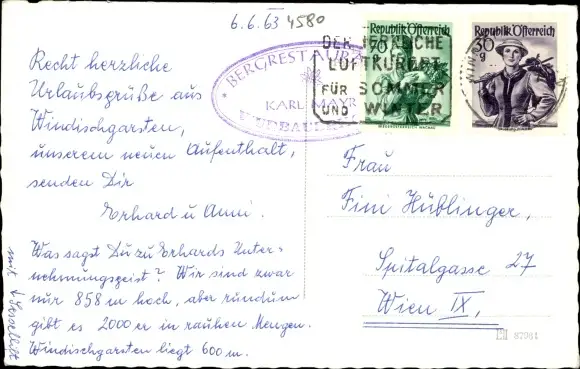 6.6.63 4580
Republik Österreich
70
Republik Österreich
30 g
DER HERRLICHE
LUFTKURORT
FÜR SOMMER
UND WINTER
BERGRESTAUR
KARL MAYR
Recht herzliche
Urlaubsgrüße aus
Windischgarsten,
unserem neuen Aufenthalt,
senden Dir
Erhard u Anni.
Was sagst Du zu Erhards Unter=
nehmungsgeist? Wir sind zwar
nur 858 m hoch, aber rundum
gibt es 2000er in rauhen Mengen.
Windischgarsten liegt 600 m.
mit
Frau
Fini Hüblinger,
Spitalgasse 27
Wien IX,